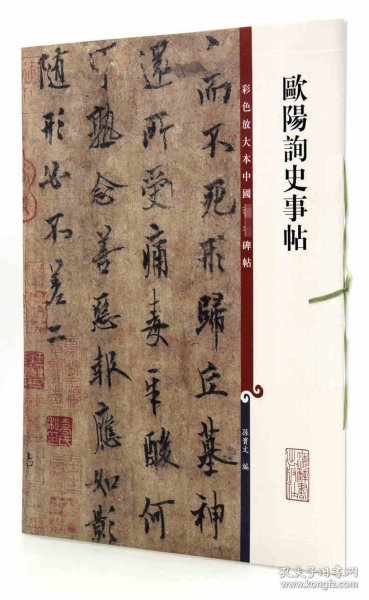 歐陽詢史事帖
彩色放大本中國
碑帖
孫寶文 編
而不死形歸丘墓神
還所受痛毒辛酸何
可熟念善惡報應如影
隨形必不差二
占
孔夫子旧书网